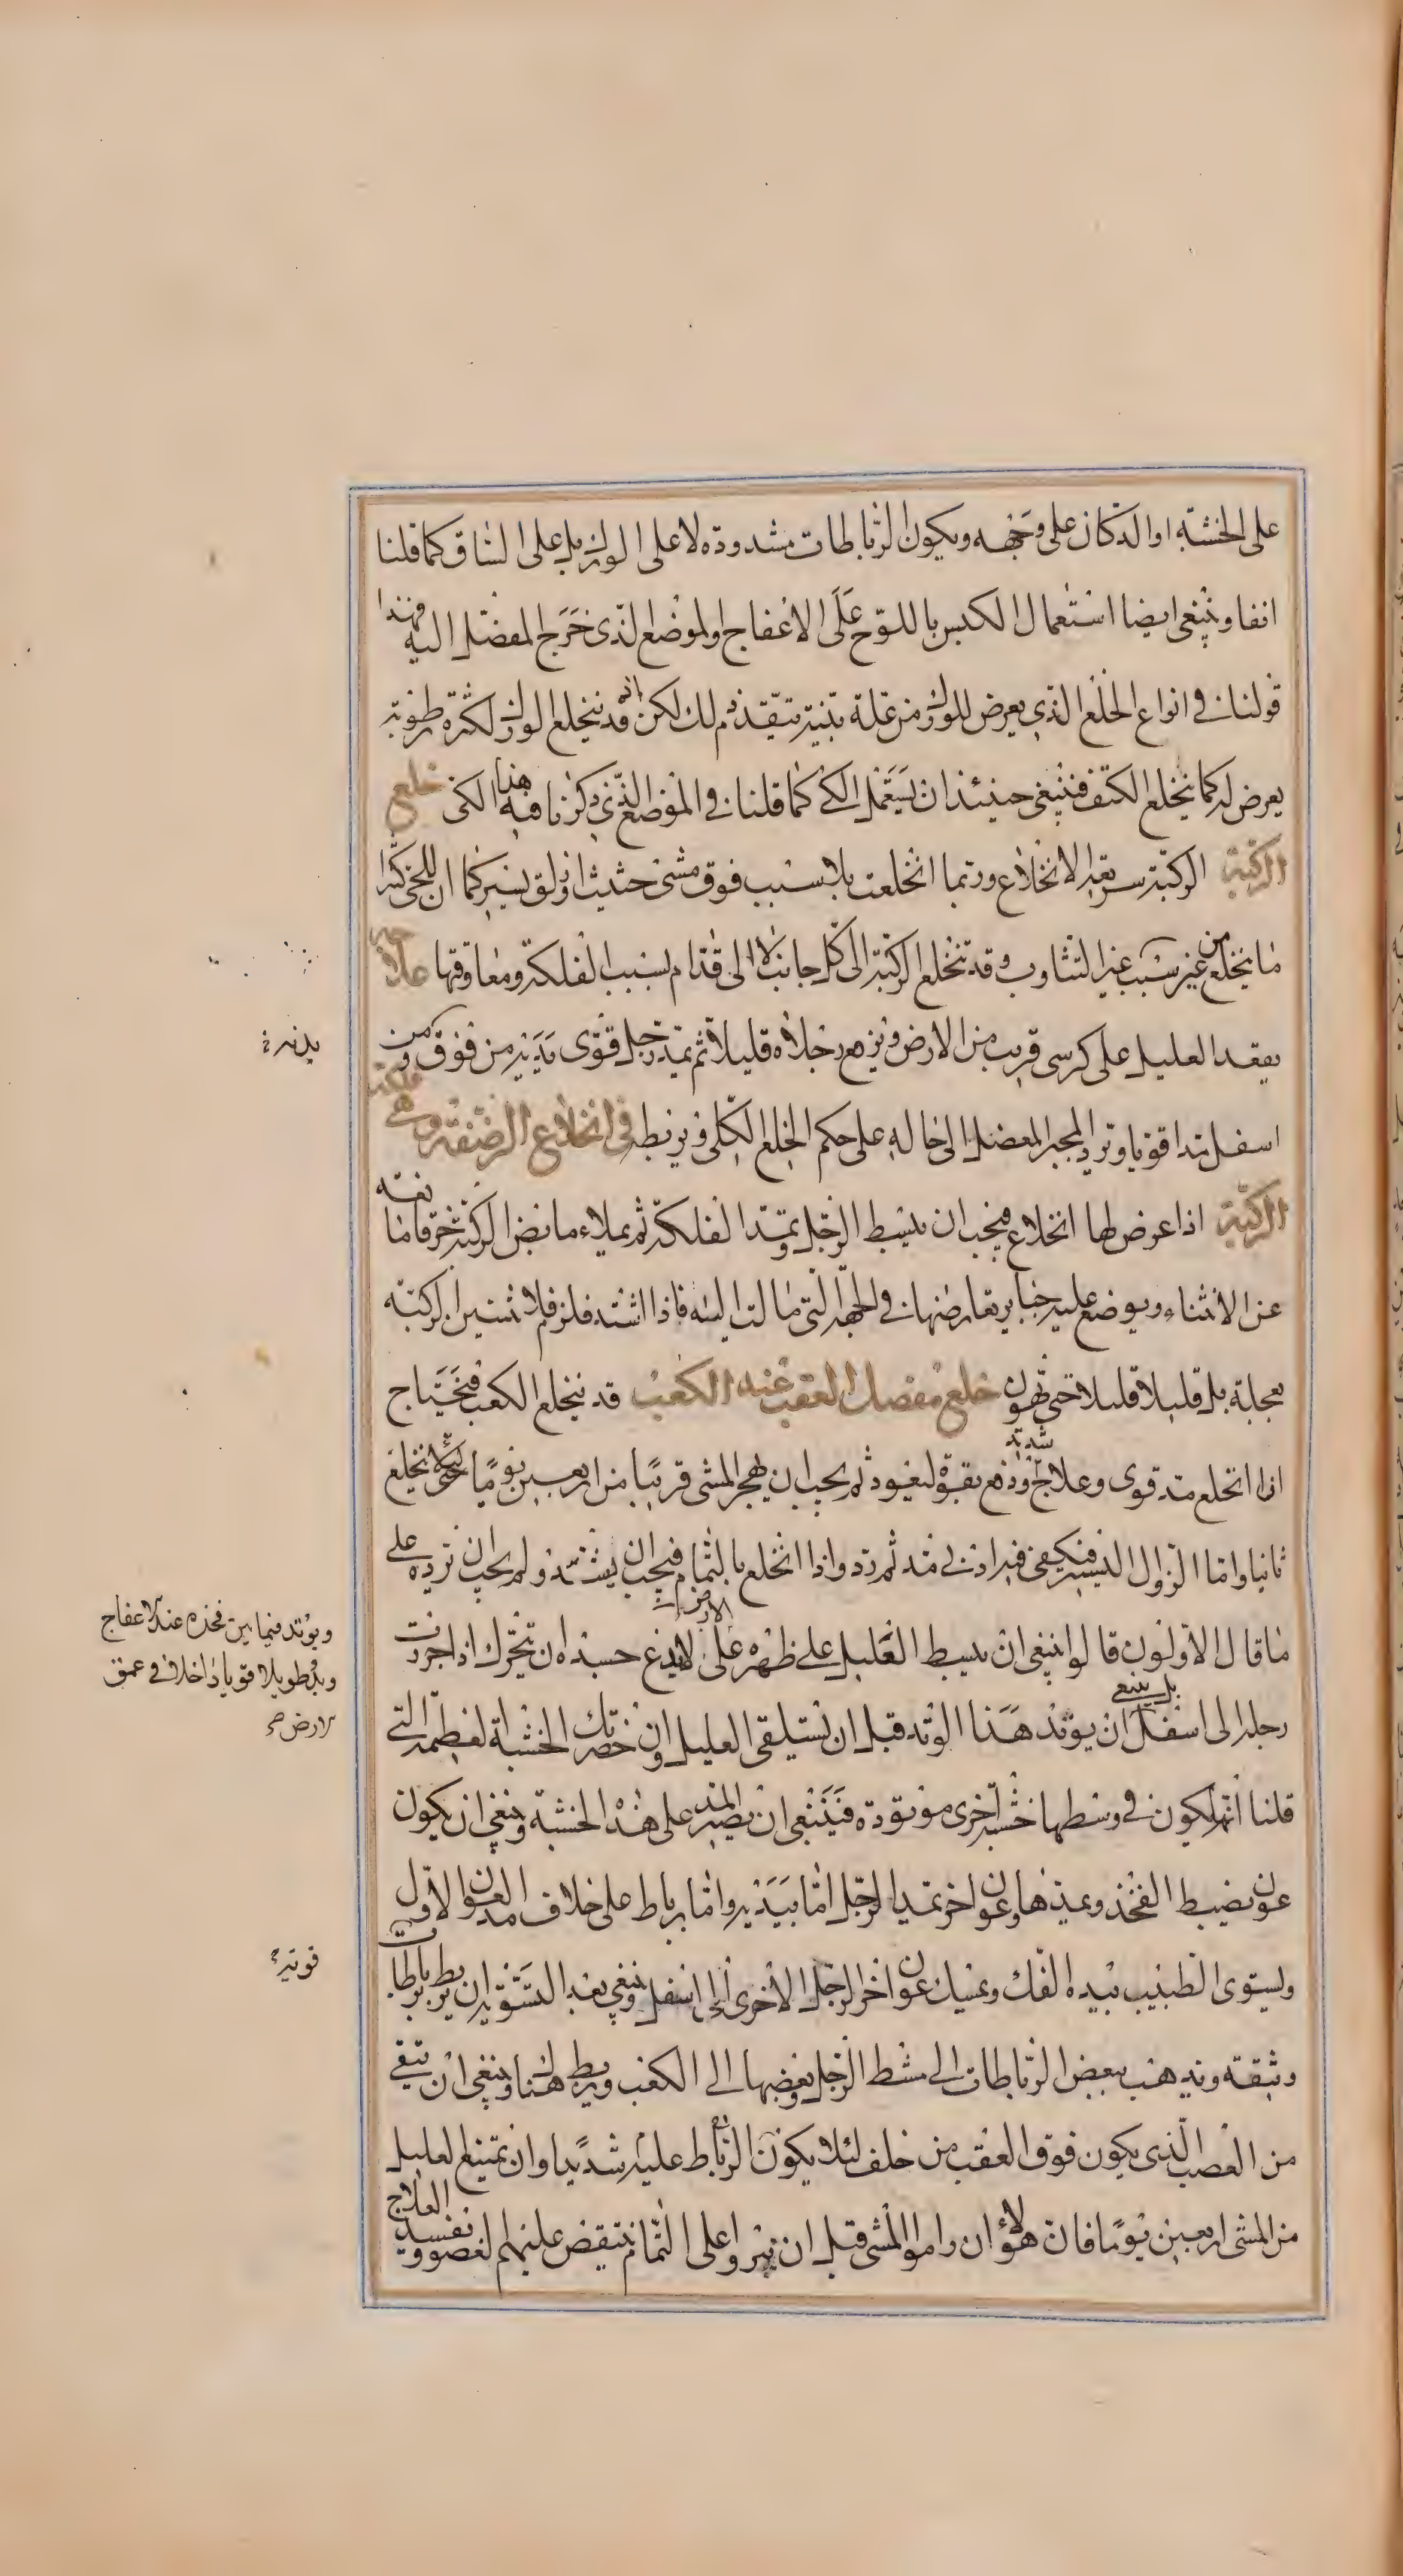 على الخشبة او الدكان على وجهه ويكون الرباطات مشدودة لا على الورك بل على الساق كما قلنا
انفا وينبغى ايضا استعمال الكبس باللوح على الاعفاج اولموضع الذى خرج المفصل اليه فهذا
قولنا فى انواع الخلع الذى يعرض للورك من علة بينة تتقدم لك لكن انه قد ينخلع الورك لكثرة رطوبة
يعرض له كما ينخلع الكتف فينبغى حينئذ ان يستعمل الكى كما قلنا فى الموضع الذى ذكرنا فيه هذا الكى خلع
الركبة الركبة سريعة الانخلاع وربما انخلعت بلا سبب فوق مشى حثيث او زلق يسير كما ان اللحى كثيرا
ما ينخلع من غير سبب غير التثاوب وقد تنخلع الركبة الى كل جانب الا الى قدام بسبب الفلكة ومعاوقتها علاجه
يقعد العليل على كرسى قريب من الارض ويرفع رجلاه قليلا ثم يمد رجل قوى يديه من فوق ومن
اسفل مدا قويا ويرد المجبر المفصل الى حاله على حكم الخلع الكلى ويربطه فى انخلاع الرضفة وهى فلكة
الركبة اذا عرض لها انخلاع فيجب ان يبسط الرجل ويمد الفلكة ثم يملاء مابض الركبة خرقا مانعته
عن الانثناء ويوضع عليه جباير تعارضها فى الجهة التى مالت اليه فاذا اشتد فلزم فلا تثنين الركبة
بعجلة بل قليلا قليلا حتى تهون خلع مفصل العقب عنه الكعب قد ينخلع الكعب فيحتاج
اذا انخلع مد قوى وعلاج شديد ودفع بقوة ليعود ثم يجب ان يهجر المشى قريبا من اربعين يوما حتى لئلا تخلع
ثانيا واما الزوال اليسير فيكفى فيه ادنى مد ثم رد واذا انخلع بالتمام فيجب ان يشد ولم يجب ان ترده على
ما قال الاولون قالوا ينبغى ان يبسط العليل على ظهره على الارض لا يدع جسده ان يتحرك اذا جررت
رجله الى اسفل بل ينبغى ان يوتد هذا الوتد قبل ان يستلقى العليل وان حضرتك الخشبة العظيمة التى
قلنا انه يكون فى وسطها خشبة اخرى موتودة فينبغى ان يصير المد على هذه الخشبة وينبغى ان يكون
عون يضبط الفخذ ويمدها وعون اخر يمد الرجل اما بيديه واما برباط على خلاف مد العون الاول
وليستوى الطبيب بيده الفك ويمسك عون اخر الرجل الاخرى الى اسفل وينبغى بعد التسوية ان يربط برباطات
وثيقة ويذهب ببعض الرباطات الى مشط الرجل وبعضها الى الكعب ويربط هناك وينبغى ان يتقى
من العصب الذى يكون فوق العقب من خلف لئلا يكون الرباط عليه شديدا وان يمتنع العليل
من المشى اربعين يوما فان هؤلاء ان راموا المشى قبل ان يبرؤا على التمام ينتقض عليهم العضو ويفسد العلاج
يديه
ويوتد فيما بين فخذه عند الاعفاج
وتد طويلا قويا داخلا فى عمق
الارض صح
قوية